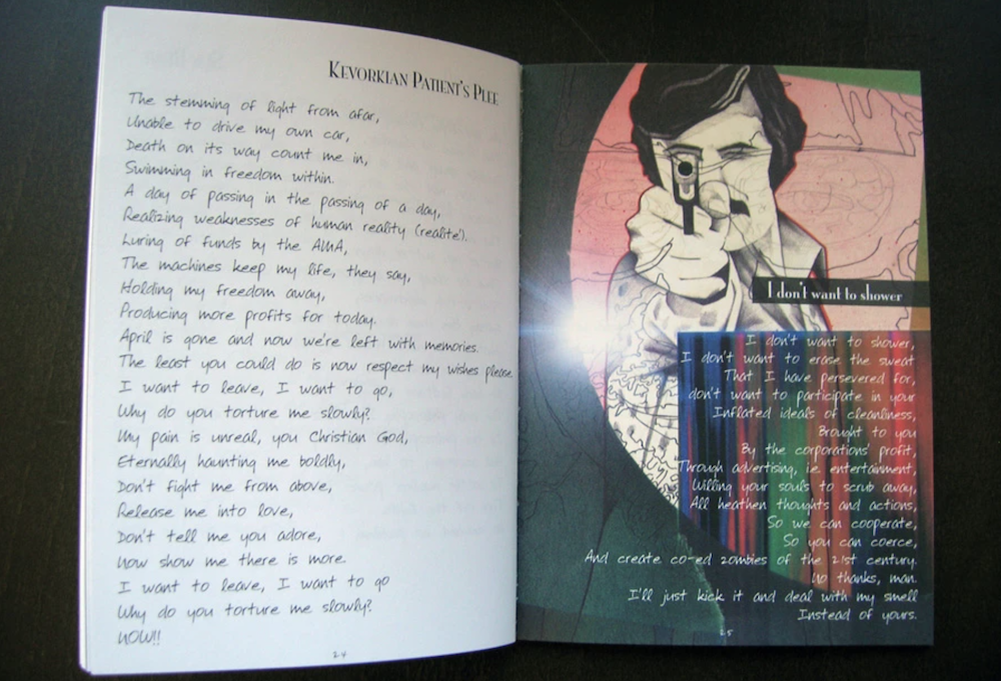 KEVORKIAN PATIENT'S PLEE
The stemming of light from afar,
Unable to drive my own car,
Death on its way count me in,
Swimming in freedom within.
A day of passing in the passing of a day,
Realizing weaknesses of human reality (realite').
Luring of funds by the AMA,
The machines keep my life, they say,
Holding my freedom away,
Producing more profits for today.
April is gone and now we're left with memories.
The least you could do is now respect my wishes please.
I want to leave, I want to go,
Why do you torture me slowly?
My pain is unreal, you Christian God,
Eternally haunting me boldly,
Don't fight me from above,
Release me into love,
Don't tell me you adore,
Now show me there is more.
I want to leave, I want to go
Why do you torture me slowly?
NOW!!
24
I don't want to shower
I don't want to shower,
I don't want to erase the sweat
That I have persevered for,
don't want to participate in your
Inflated ideals of cleanliness,
Brought to you
By the corporations' profit,
Through advertising, i.e. entertainment,
Willing your souls to scrub away,
All heathen thoughts and actions,
So we can cooperate,
So you can coerce,
And create co-ed zombies of the 21st century.
No thanks, man.
I'll just kick it and deal with my smell
Instead of yours.
25